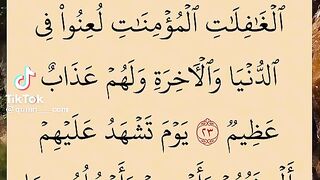 ٱلۡغَٰفِلَٰتِ ٱلۡمُؤۡمِنَٰتِ لُعِنُواْ فِي
ٱلدُّنۡيَا وَٱلۡأٓخِرَةِ وَلَهُمۡ عَذَابٌ
TikTok
عَظِيمٞ ٢٣ يَوۡمَ تَشۡهَدُ عَلَيۡهِمۡ